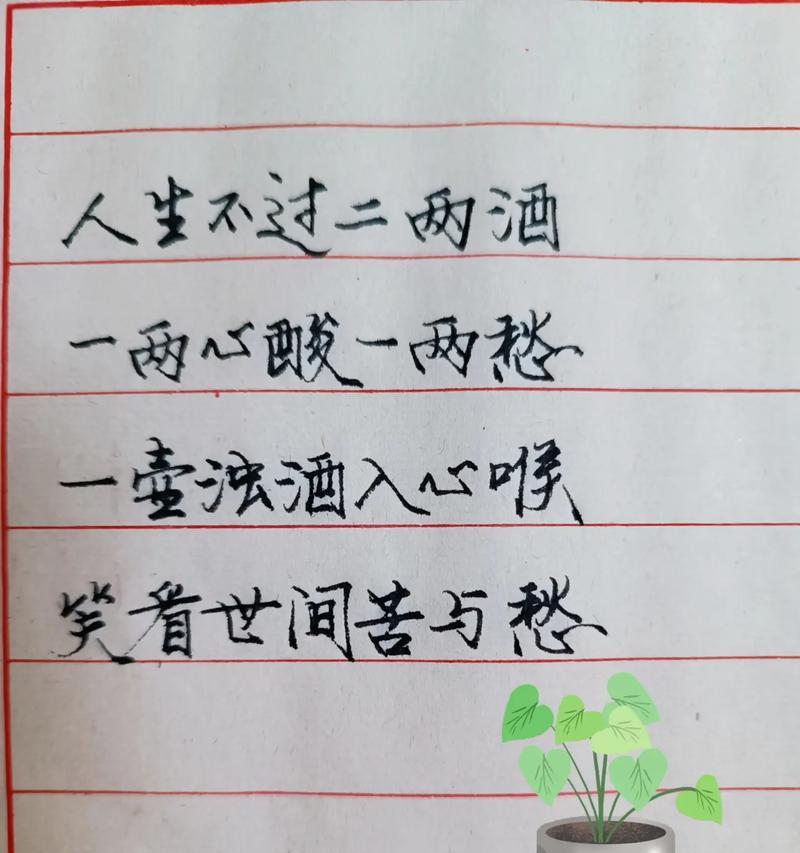 人生不过二两酒
一两心酸一两愁
一壶浊酒入心喉
笑看世间苦与愁